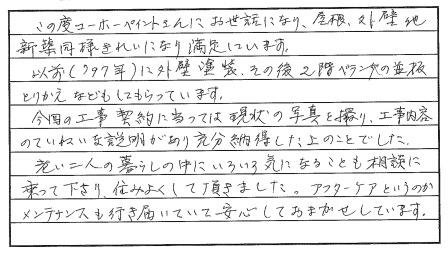 この度コーホーペイントさんにお世話になり、屋根、外壁他
新築同様きれいになり満足しています。
以前(97年)に外壁塗装、その後2階ベランダの波板
とりかえなどもしてもらっています。
今回の工事契約に当っては現状の写真を撮り、工事内容
のていねいな説明があり充分納得した上のことでした。
老い二人の暮らしの中にいろいろ気になることも相談に
乗って下さり、住みよくして頂きました。アフターケアというのか
メンテナンスも行き届いていて安心しておまかせしています。